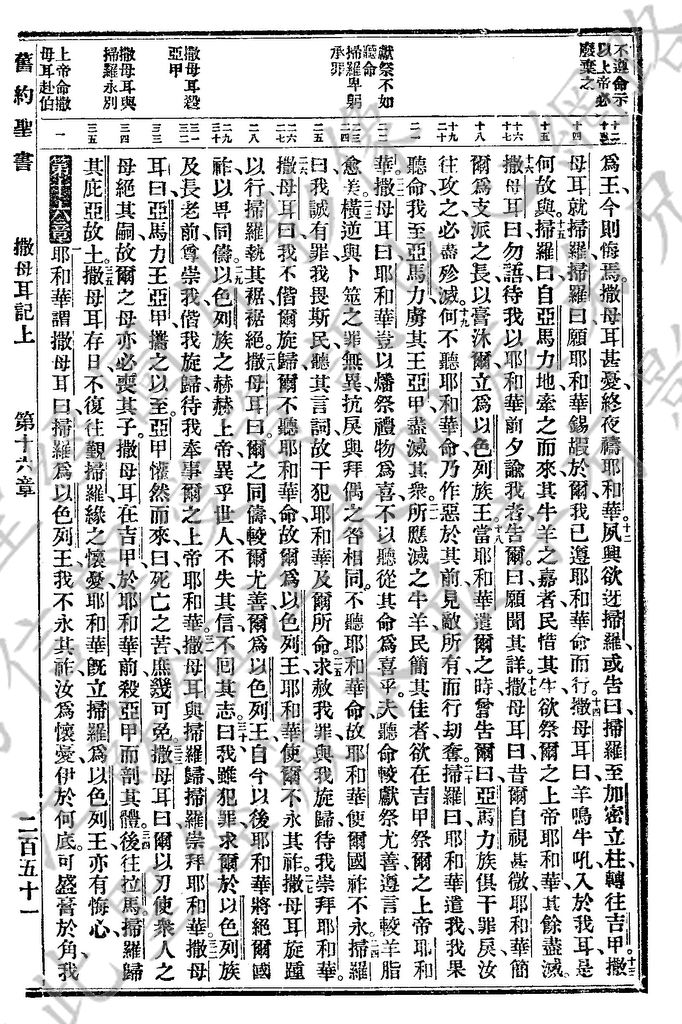 不遵命示
以上帝必
廢棄之
獻祭不如
聽命
掃羅卑躬
承罪
撒母耳殺
亞甲
撒母耳與
掃羅永別
上帝命撒
母耳赴伯
十二
十三
十四
十五
十六
十七
十八
十九
二十
二一
二二
二三
二四
二五
二六
二七
二八
二九
三十
三一
三二
三三
三四
三五
一
爲王今則悔焉撒母耳甚憂終夜禱耶和華夙興欲迓掃羅或告曰掃羅至加密立柱轉往吉甲撒
母耳就掃羅掃羅曰願耶和華錫嘏於爾我已遵耶和華命而行撒母耳曰羊鳴牛吼入於我耳是
何故與掃羅曰自亞馬力地牽之而來其牛羊之嘉者民惜其生欲祭爾之上帝耶和華其餘盡滅
撒母耳曰勿語待我以耶和華前夕諭我者告爾曰願聞其詳撒母耳曰昔爾自視甚微耶和華簡
爾爲支派之長以膏沐爾立爲以色列族王當耶和華遣爾之時曾告爾曰亞馬力族俱干罪戾汝
往攻之必盡殄滅何不聽耶和華命乃作惡於其前見敵所有而行劫奪掃羅曰耶和華遣我我果
聽命我至亞馬力虜其王亞甲盡滅其衆所應滅之牛羊民簡其佳者欲在吉甲祭爾之上帝耶和
華撒母耳曰耶和華豈以燔祭禮物爲喜不以聽從其命爲喜乎夫聽命較獻祭尤善遵言較羊脂
愈美橫逆與卜筮之罪無異抗戾與拜偶之咎相同不聽耶和華命故耶和華使爾國祚不永掃羅
曰我誠有罪我畏斯民聽其言詞故干犯耶和華及爾所命求赦我罪與我旋歸待我崇拜耶和華
撒母耳曰我不偕爾旋歸爾不聽耶和華命故爾爲以色列王耶和華使爾不永其祚撒母耳旋踵
以行掃羅執其裾裾絕撒母耳曰爾之同儔較爾尤善爾爲以色列王自今以後耶和華將絕爾國
祚以畀同儔以色列族之赫赫上帝異乎世人不失其信不回其志曰我雖犯罪求爾於以色列族
及長老前尊崇我偕我旋歸待我奉事爾之上帝耶和華撒母耳與掃羅歸掃羅崇拜耶和華撒母
耳曰亞馬力王亞甲攜之以至亞甲懽然而來曰死亡之苦庶幾可免撒母耳曰爾以刃使衆人之
母絕其嗣故爾之母亦必喪其子撒母耳在吉甲於耶和華前殺亞甲而剖其體後往拉馬掃羅歸
其庇亞故土撒母耳存日不復往觀掃羅緣之懷憂耶和華旣立掃羅爲以色列王亦有悔心
第十六章耶和華謂撒母耳曰掃羅爲以色列王我不永其祚汝爲懷憂伊於何底可盛膏於角我
舊約聖書
撒母耳記上
第十六章
二百五十一